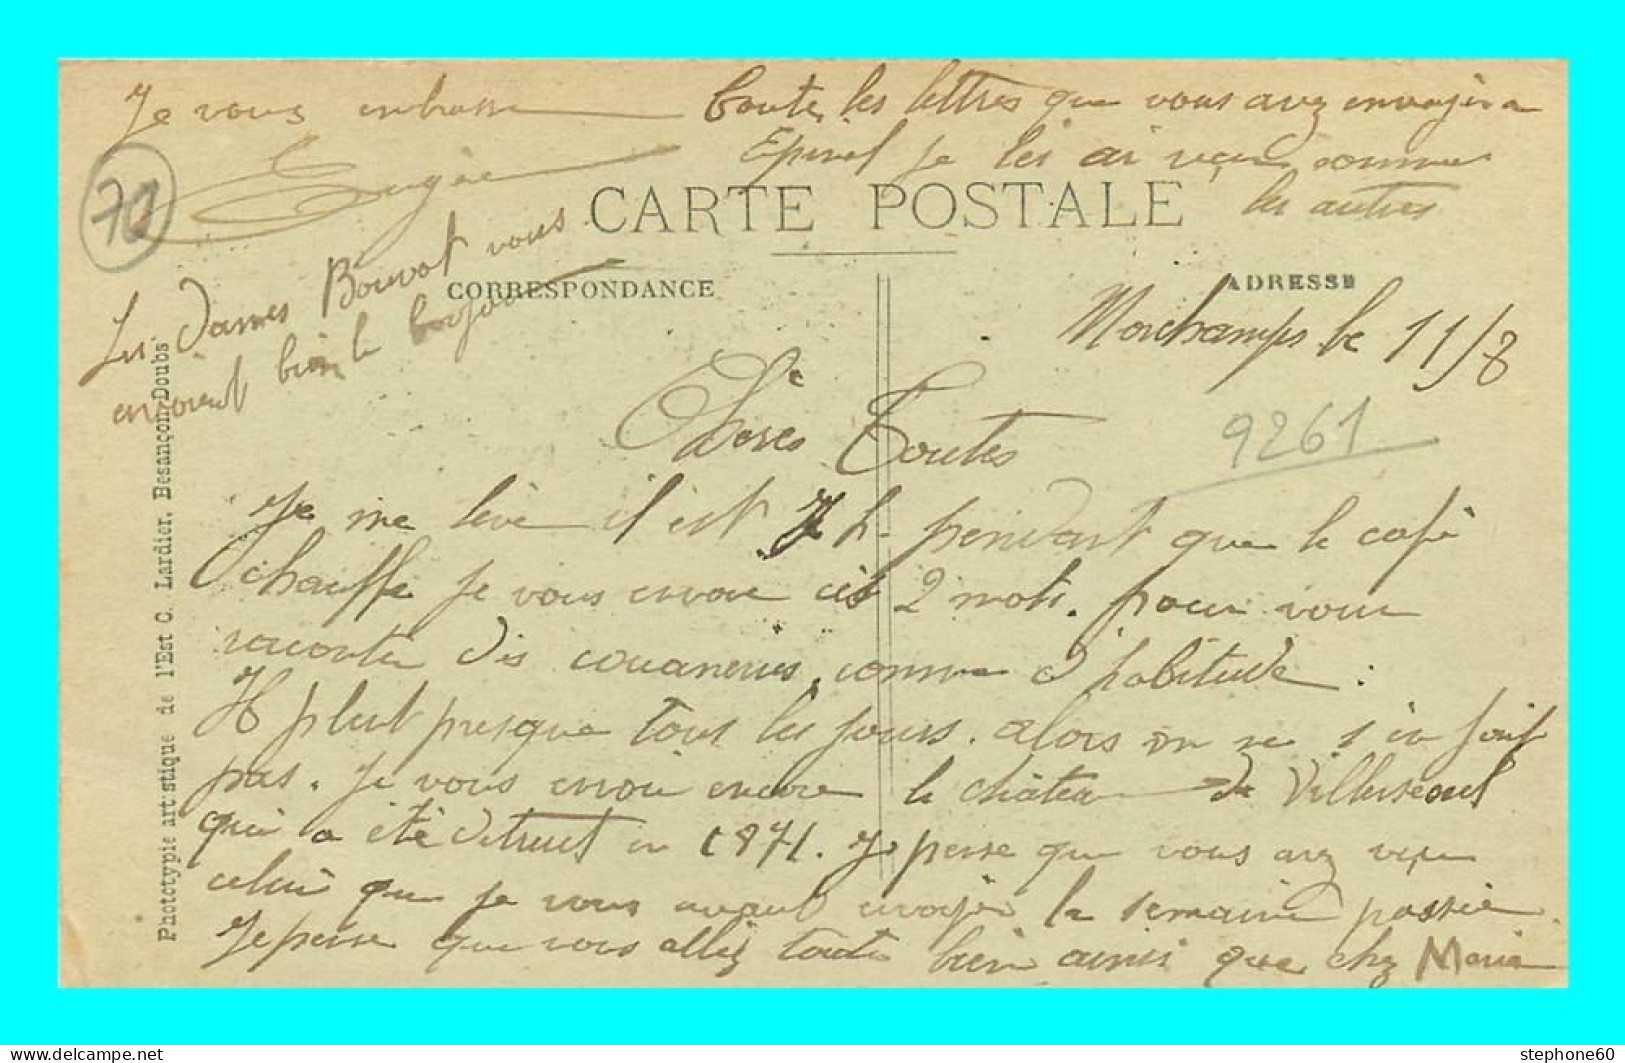 Je vous embrasse
Eugène
Toutes les lettres que vous avez envoyées a
Epinal je les ai reçu comme
les autres
70
CARTE POSTALE
CORRESPONDANCE
ADRESSE
Les Dames Bouvot vous
envoient bien le bonjour
Morchamps le 11/8
Chères Toutes
9261
Je me lève il est 7 h. pendant que le café
chauffe je vous envoie ces 2 mots. pour vous
raconter des couaneries comme d'habitude.
Il pleut presque tous les jours. alors on ne s'en fait
pas. Je vous envoie encore le château de Villersexel
qui a été détruit en 1871. Je pense que vous avez reçu
celui que je vous avait envoyé la semaine passée.
Je pense que vous allez toutes bien ainsi que chez Maria
Phototypie artistique de l'Est C. Lardier, Besançon-Doubs
stephone60